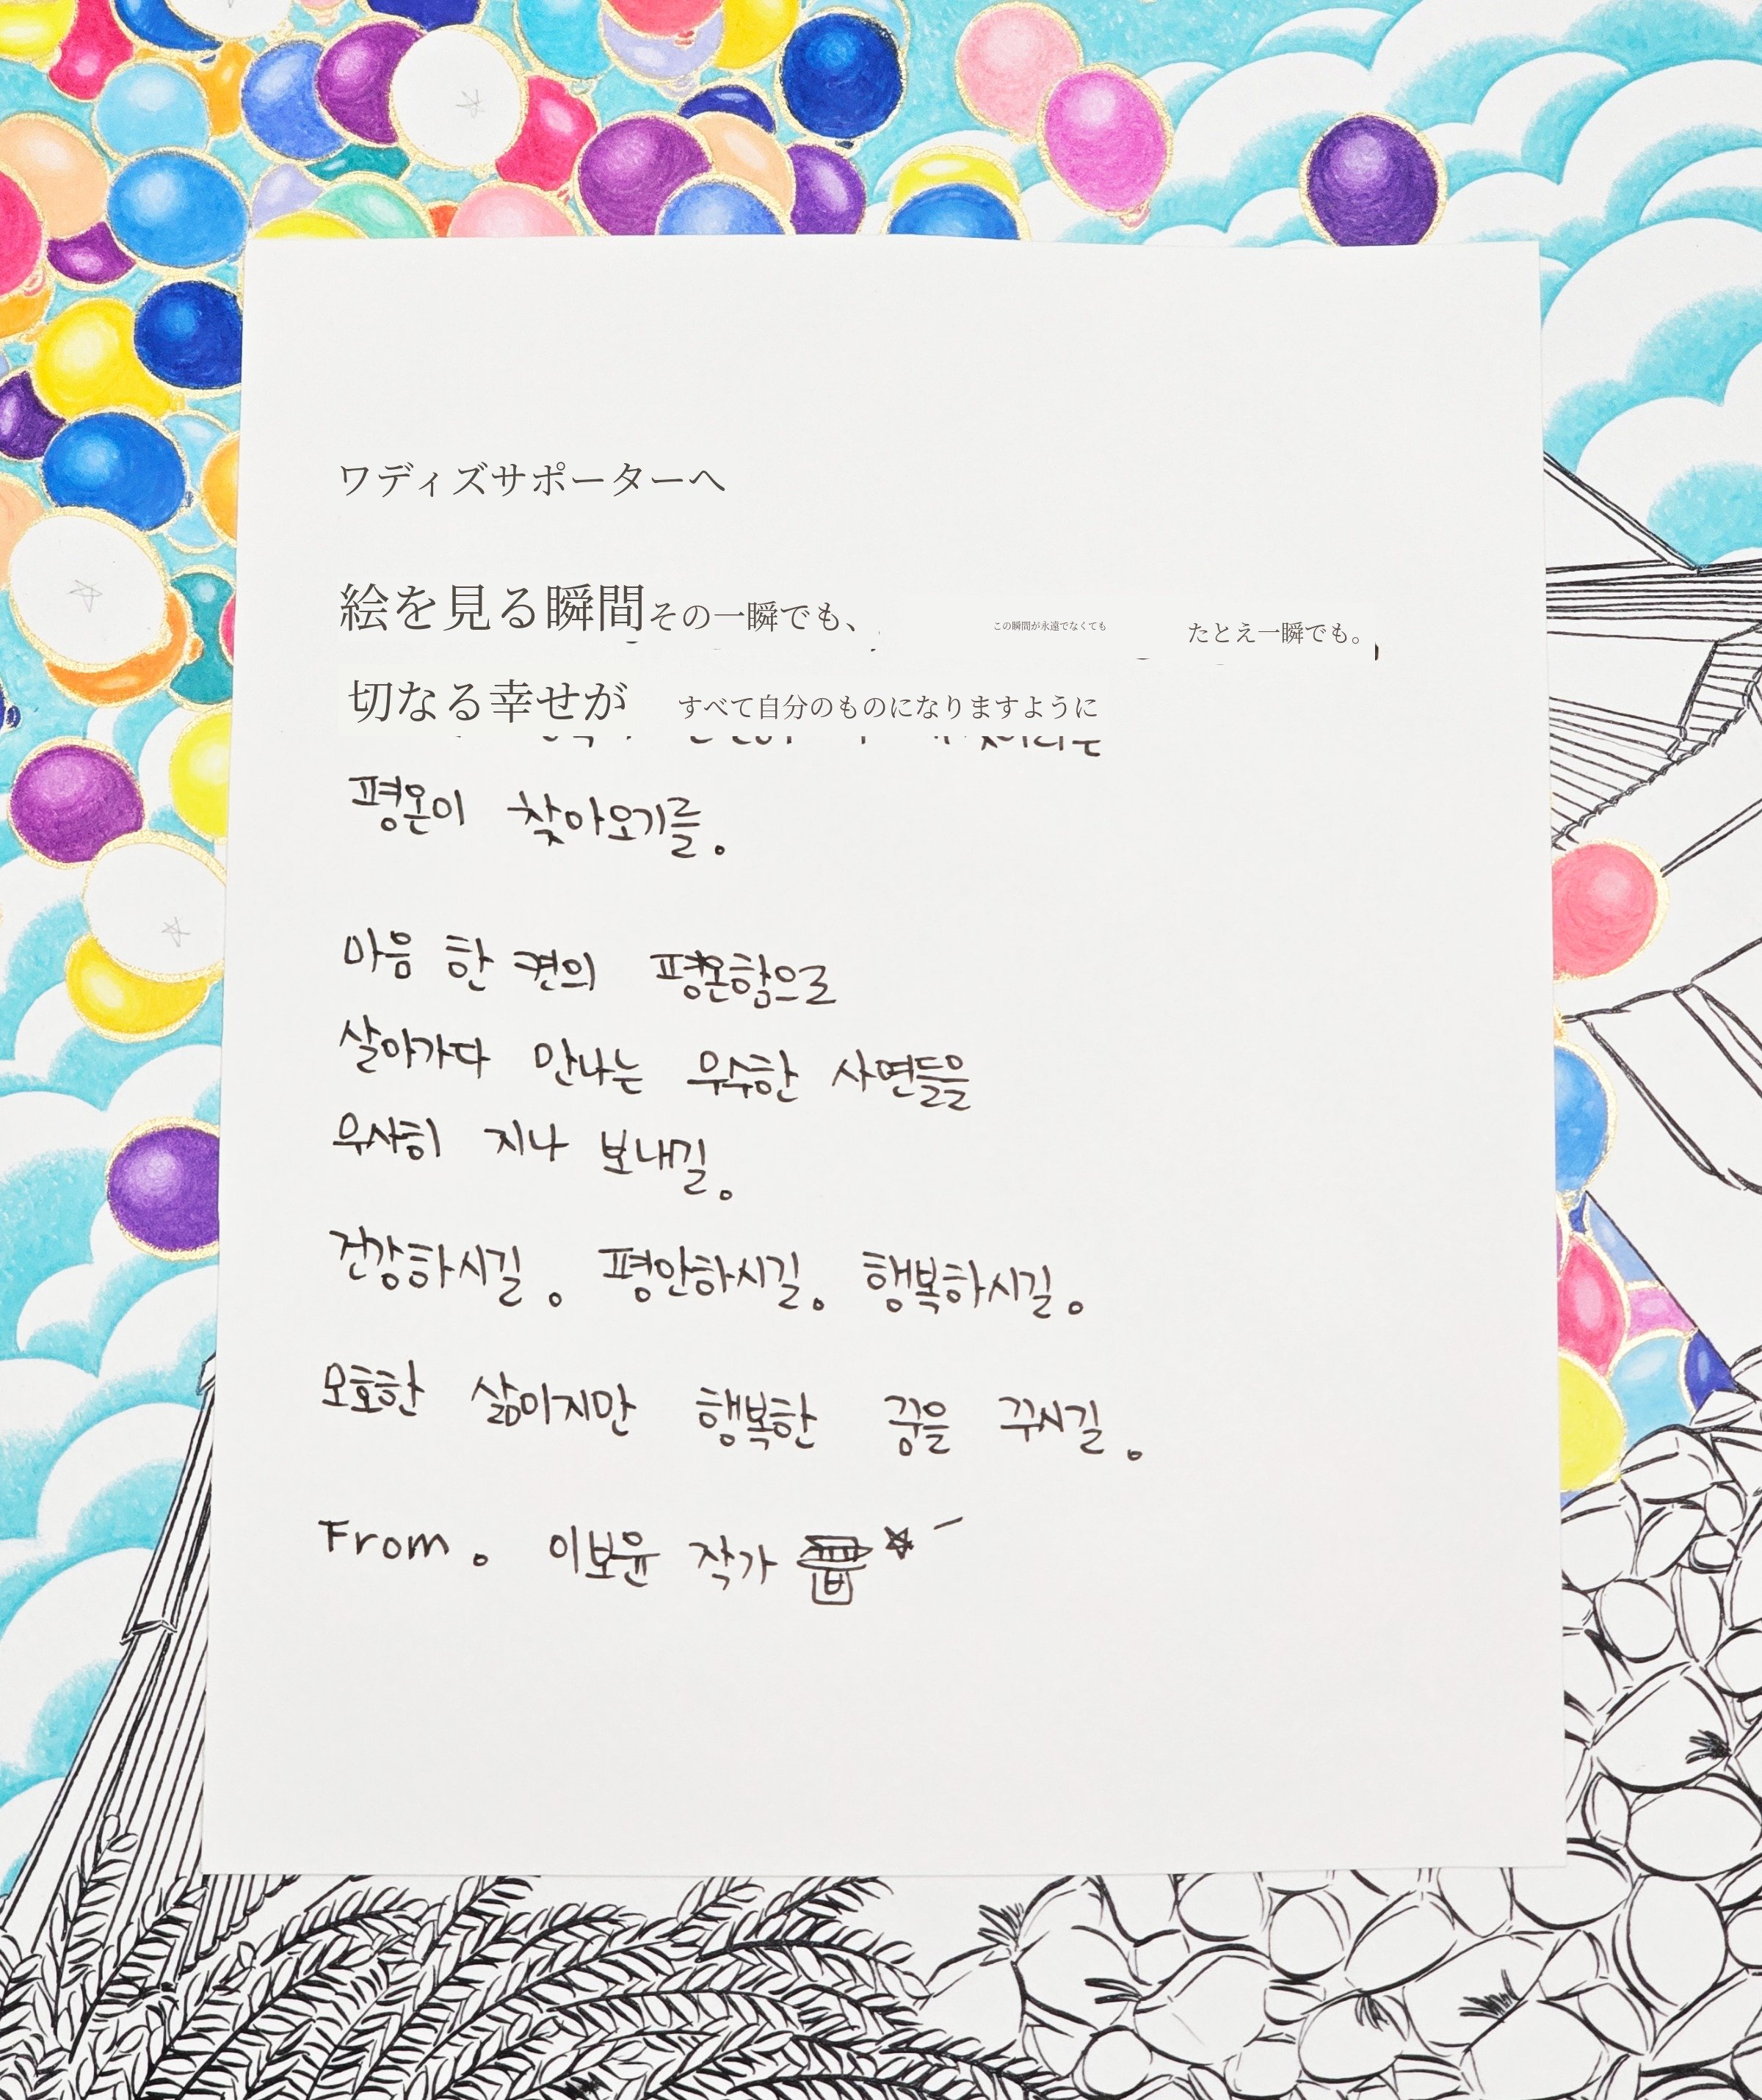 ワディズサポーターへ
絵を見る瞬間その一瞬でも、 この瞬間が永遠でなくても たとえ一瞬でも。
切なる幸せが すべて自分のものになりますように
평온이 찾아오기를.
마음 한 켠의 평온함으로
살아가다 만나는 무수한 사연들을
무사히 지나 보내길.
건강하시길. 평안하시길. 행복하시길.
모호한 삶이지만 행복한 꿈을 꾸시길.
From. 이보윤 작가